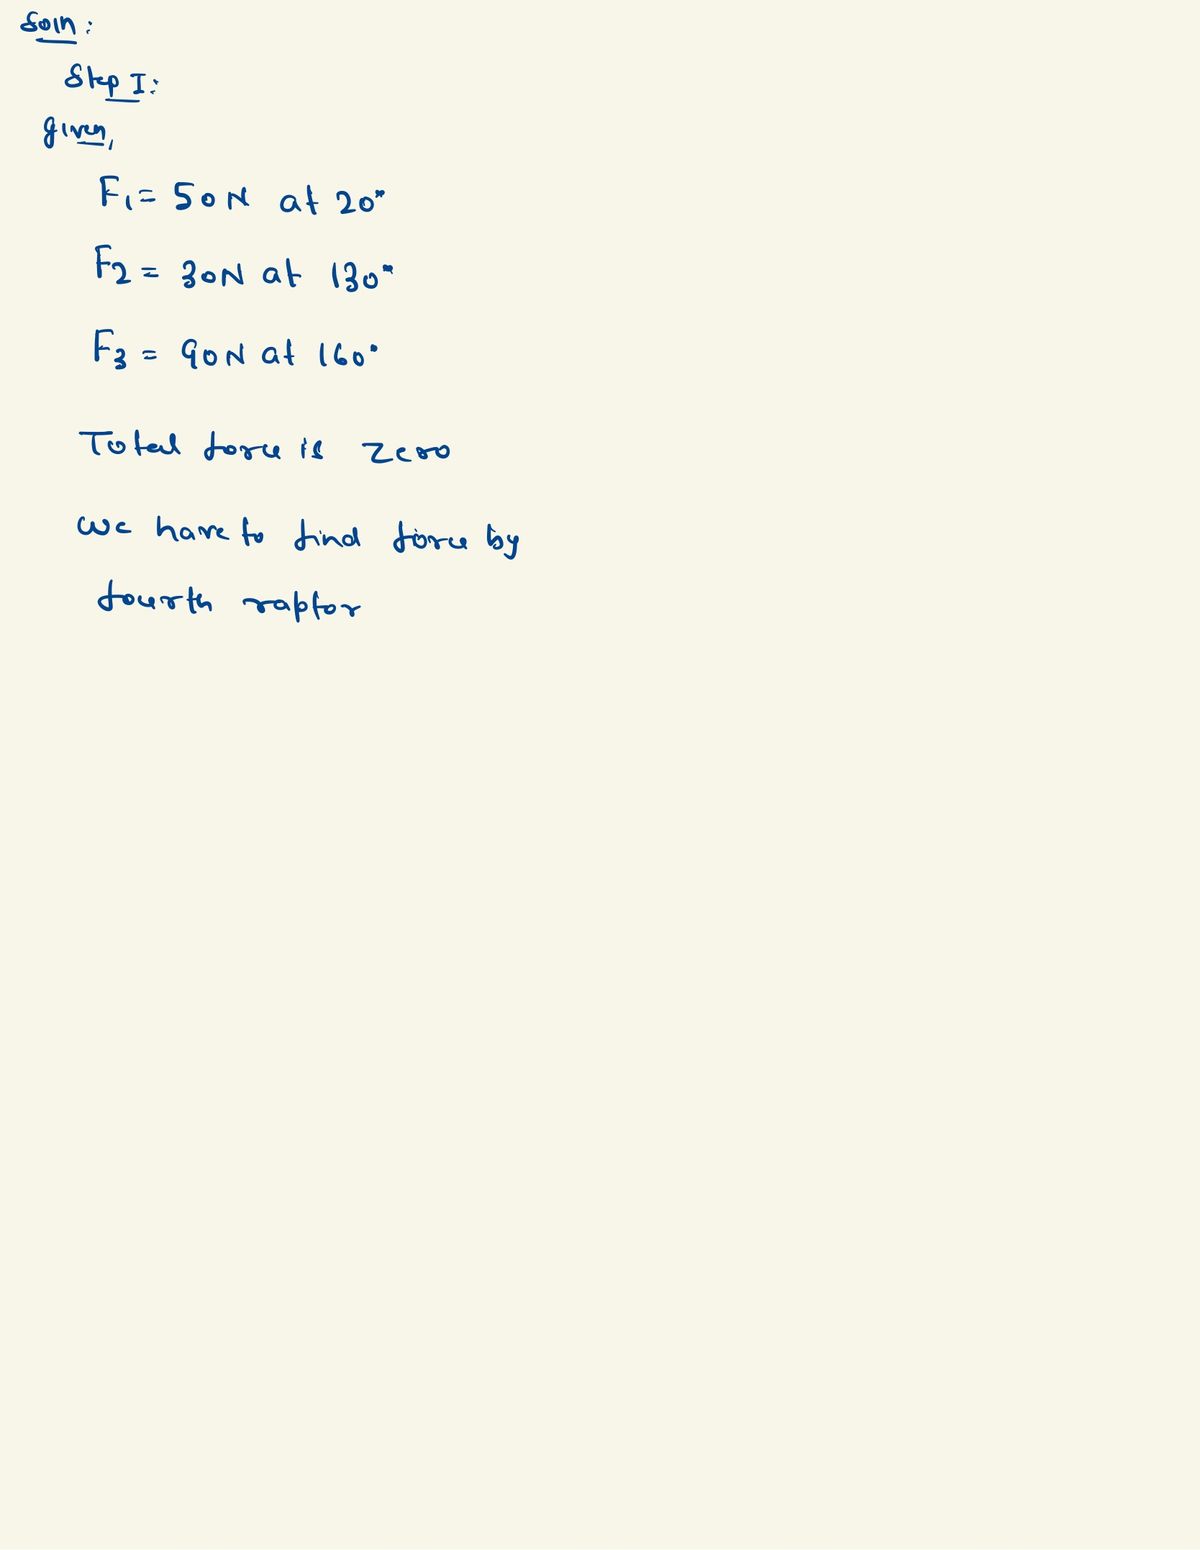 Soln:
Step I:
given,
F₁ = 50N at 20°
F₂ = 30N at 130°
F₃ = 90N at 160°
Total force is zero
we have to find force by
fourth raptor